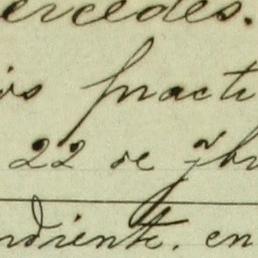 ercedes.
ios practi
22 de 7br
ndiente. en